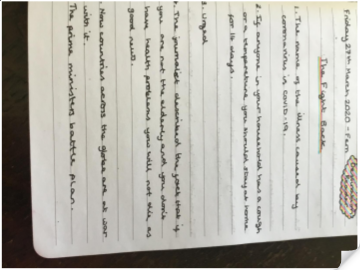 Friday 27th March 2020 - 9am
The Fight Back
1. The name of the illness caused by
coronavirus is covid-19.
2. If anyone in your household has a cough
or a temperature you should stay at home
for 14 days.
3. Urged
4. The journalist described the fact that if
you are not the elderly and you don't
have health problems you will not die as
good news.
Now countries across the globe are at war
with it.
The prime ministers battle plan.